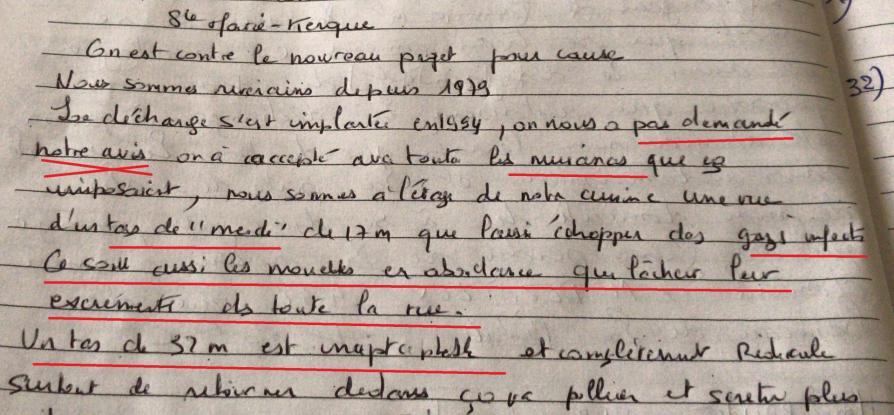 Ste Marie-Kerque
On est contre le nouveau projet pour cause
Nous sommes riverains depuis 1979 32)
La décharge s'est implantée en 1994, on nous a pas demandé
notre avis on a accepté avec toute les nuisances que ça
imposaient, nous sommes a l'étage de notre cuisine une vue
d'un tas de "merde" de 17m que laissi échapper des gazs infects
Ce sont aussi les mouettes en abondance qui lâcher leur
excréments ds toute la rue.
Un tas de 32 m est inacceptable et complètement Ridicule
Surtout de retourner dedans ça va polluer et sentir plus